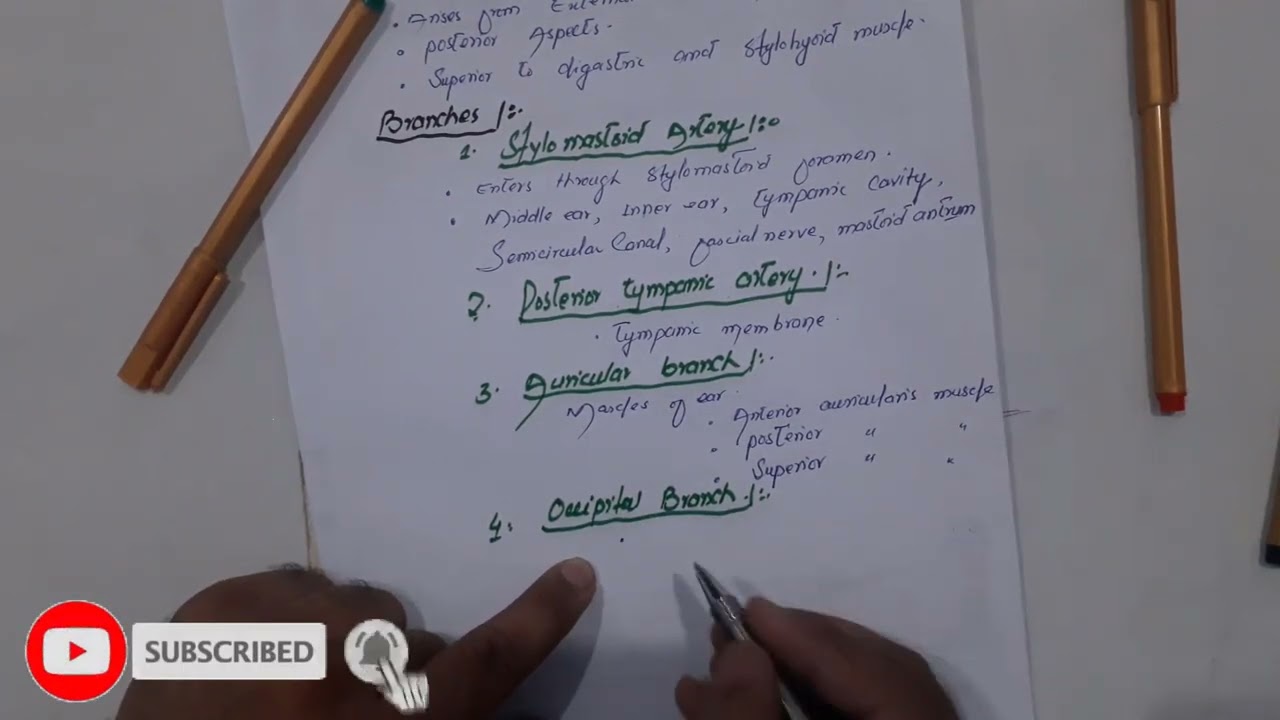 • Arises from External
• posterior Aspects.
• Superior to digastric and stylohyoid muscle.
Branches |:-
1. Stylomastoid Artery |:-
• Enters through stylomastoid foramen.
• Middle ear, Inner ear, Tympanic Cavity,
Semicircular Canal, fascial nerve, mastoid antrum
2. Posterior tympanic artery. |:-
• Tympanic membrane.
3. Auricular branch |:-
Muscles of ear.
• Anterior auricularis muscle
• posterior " "
• Superior " "
4. Occipital Branch. |:-
•
SUBSCRIBED